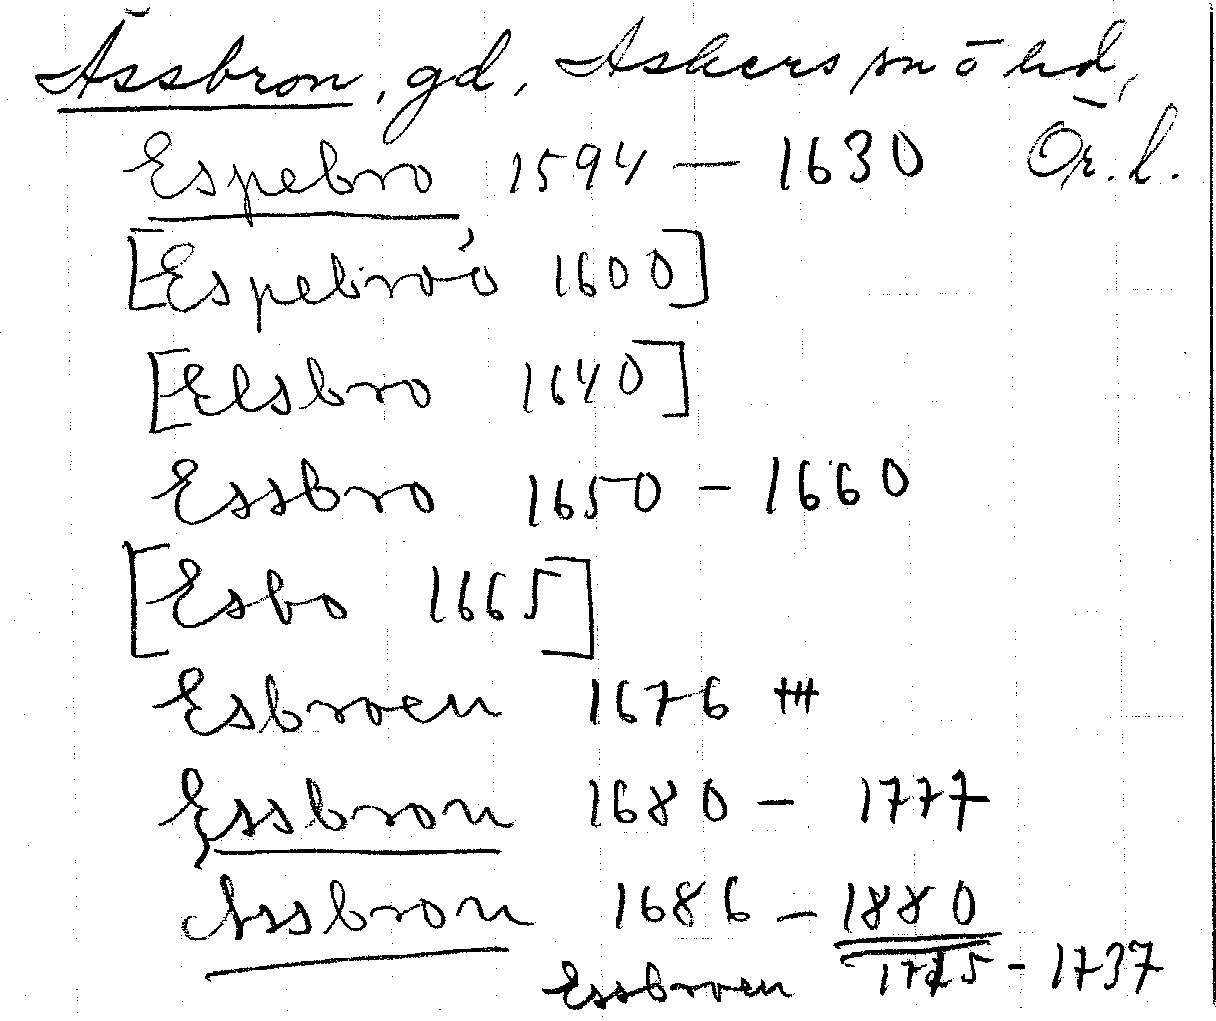 Assbron, gd, Askers sn o hd,
Ör. l.
Espebro 1594 — 1630
[Espebroó 1600]
[Elsbro 1640]
Essbro 1650 - 1660
[Esbo 1665]
Esbroen 1676 ###
Essbron 1680 - 1777
Assbron 1686 - 1880
Essbroen 1725 - 1737